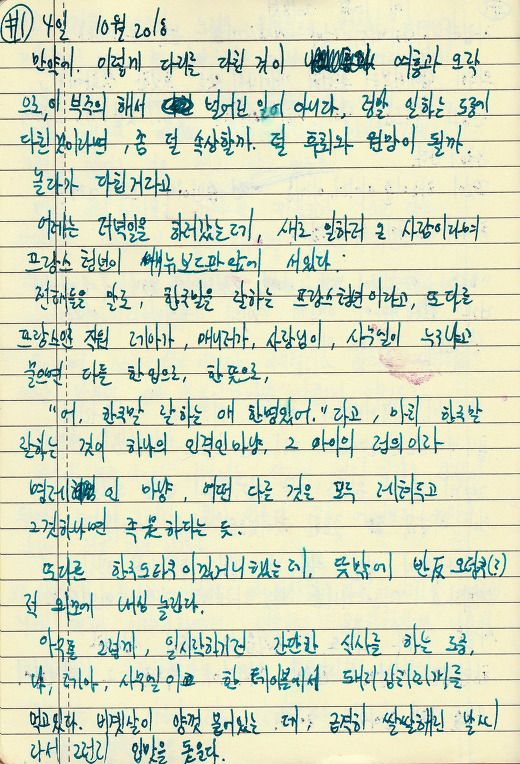 #1 4일 10월 2018
만약에. 이렇게 다리를 다친 것이 여흥과 오락
으로, 이 부주의 해서 벌어진 일이 아니라, 정말 일하는 도중에
다친 것이라면, 좀 덜 속상할까. 덜 후회와 원망이 될까.
놀다가 다친거라고.
어제는 저녁일을 하러갔는데, 새로 일하러 온 사람이라며
프랑스 청년이 메뉴보드판 앞에 서있다.
전해들은 말로, 한국말을 잘하는 프랑스청년이라고, 또다른
프랑스인 직원 레아가, 매니저가, 사장님이, 사무일이 누구냐고
물으면 다들 한 입으로, 한 뜻으로,
"어, 한국말 잘하는 애 한명있어." 다고, 마치 한국말
잘하는 것이 하나의 인격인마냥, 그 아이의 정의이라
명제 인 마냥, 어떤 다른 것은 모두 제쳐두고
그것하나면 족하다는 듯.
또다른 한국오타쿠이겠거니했는데, 뜻밖에 반反오덕후(?)
적 외모에 내심 놀란다.
아무튼 그렇게, 일시작하기전 간단한 식사를 하는 도중,
나, 레아, 사무일이고 한 테이블에서 돼지김치찌개를
먹고있다. 비곗살이 양껏 붙어있는 데, 급격히 쌀쌀해진 날씨
라서 그런지 입맛을 돋운다.